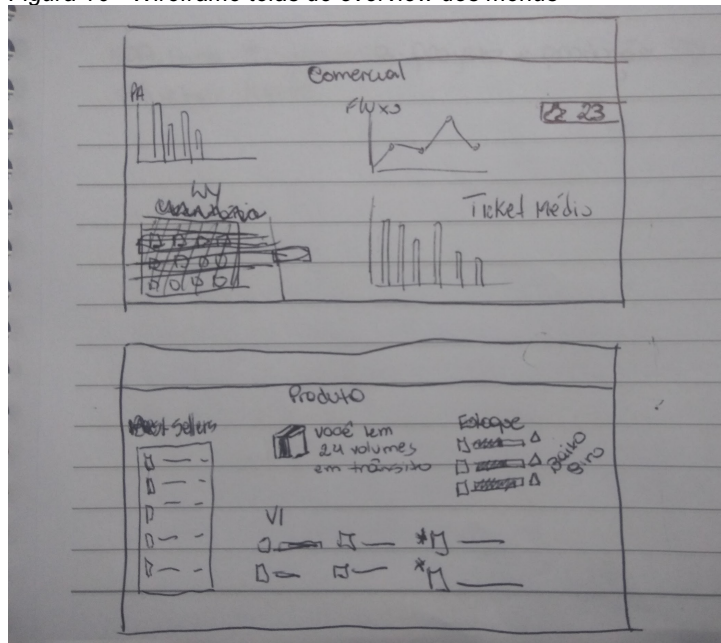 Comercial
PA
Fluxo
23
LY
Ticket Médio
Produto
Best Sellers
você tem
24 volumes
em trânsito
Estoque
Baixo
Giro
VI